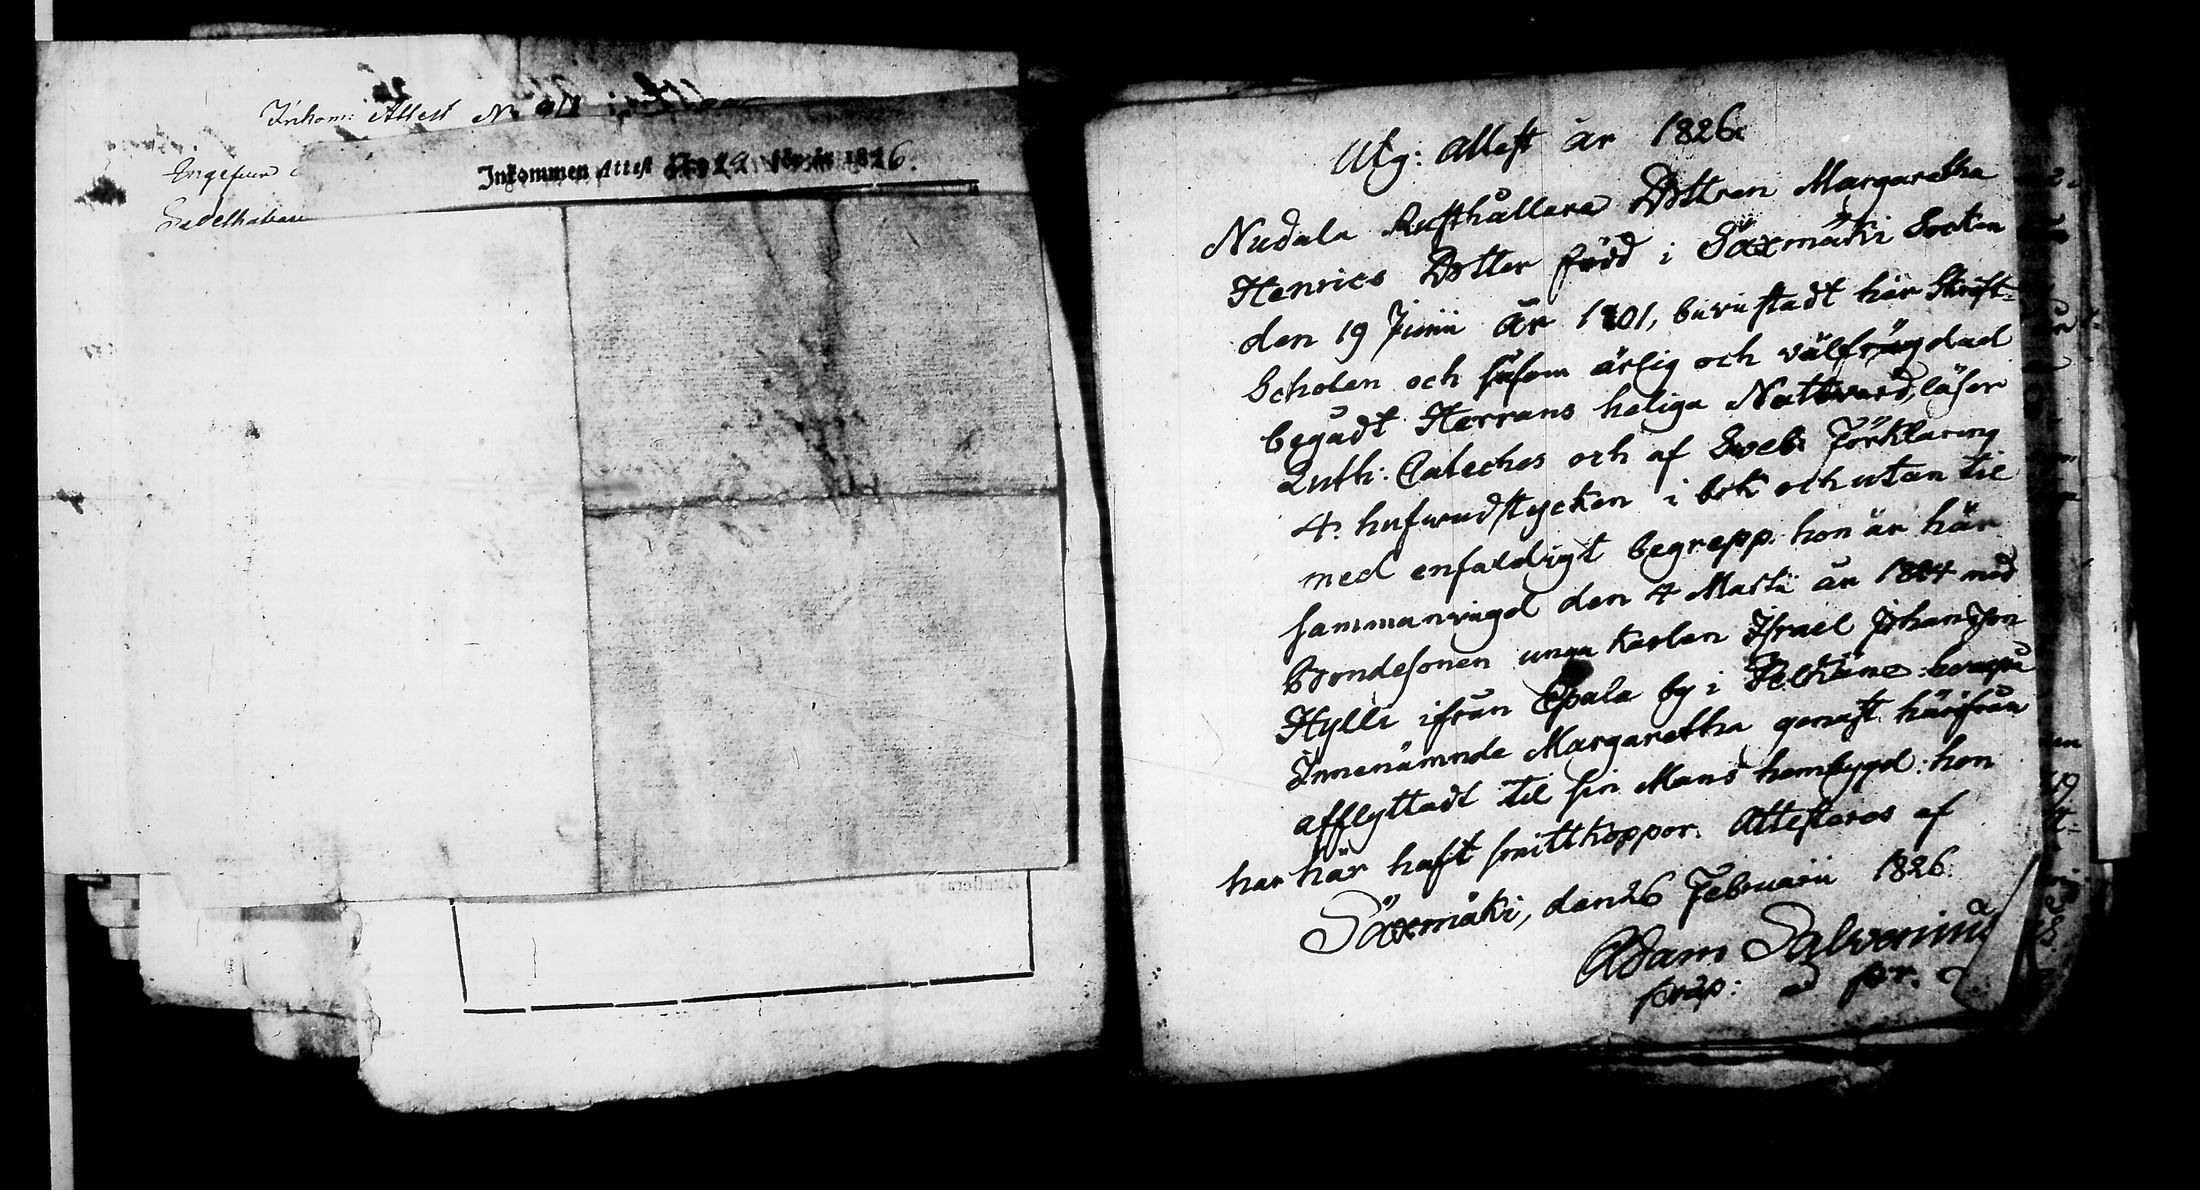 Inkom: Attest No
Engefeur
Sedelhafvare
Inkommen Attest No 22 för år 1826.
Utg: Attest år 1826.
Nudala Rusthållare Dottren Margaretha
Henrics Dotter född i Sääxmäki Socken
den 19 Junii år 1801, bevistadt här Skrift-
Scholen och såsom ärlig och välfrägdad
begådt Herrans heliga Nattvard, läser
Luth: Cateches och af Sveb: Förklaring
4. hufvudstycken i bok och utan til
med enfaldigt begrepp. hon är här
sammanvigd den 4 Martii år 1824 med
Bondesonen unga Karlen Israel Johansson
Hylli ifrån Epala by i Pelkäne hvarpå
Innenämnde Margaretha genast härifrån
afflyttadt til sin Mans hembygd: hon
har här haft smittkoppor. Attesteras af
Sääxmäki, den 26 Februarii 1826.
Adam Salvenius
præp: ad pr.